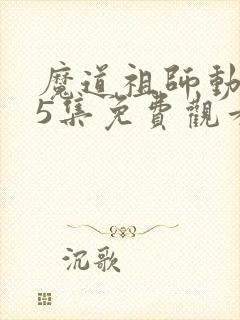 魔道祖師動
5集免費觀
沉歌